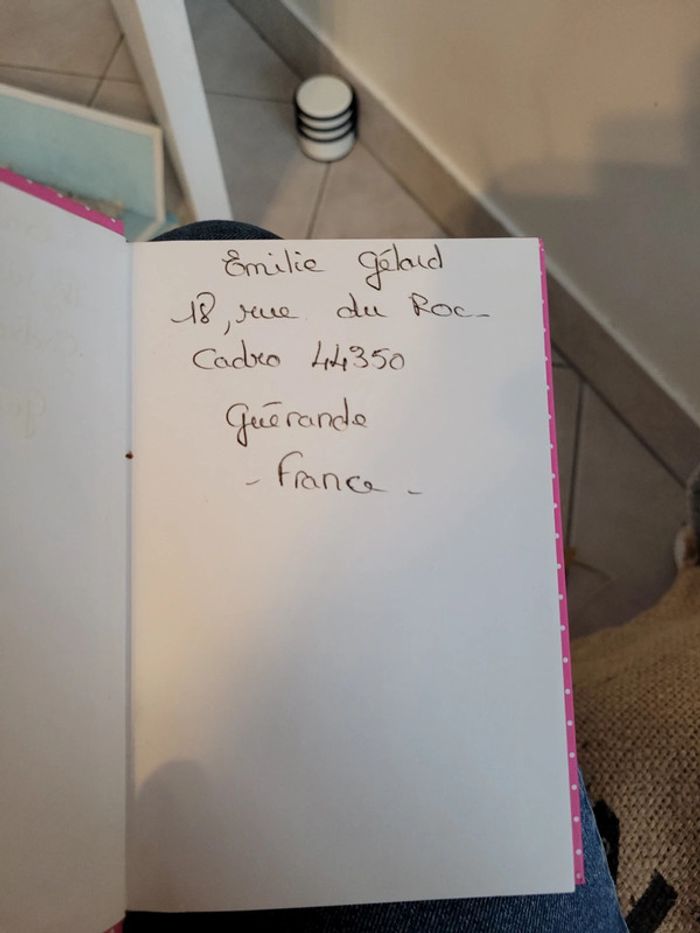 Emilie Gélard
18, rue du Roc
Cadro 44350
Guérande
- France -